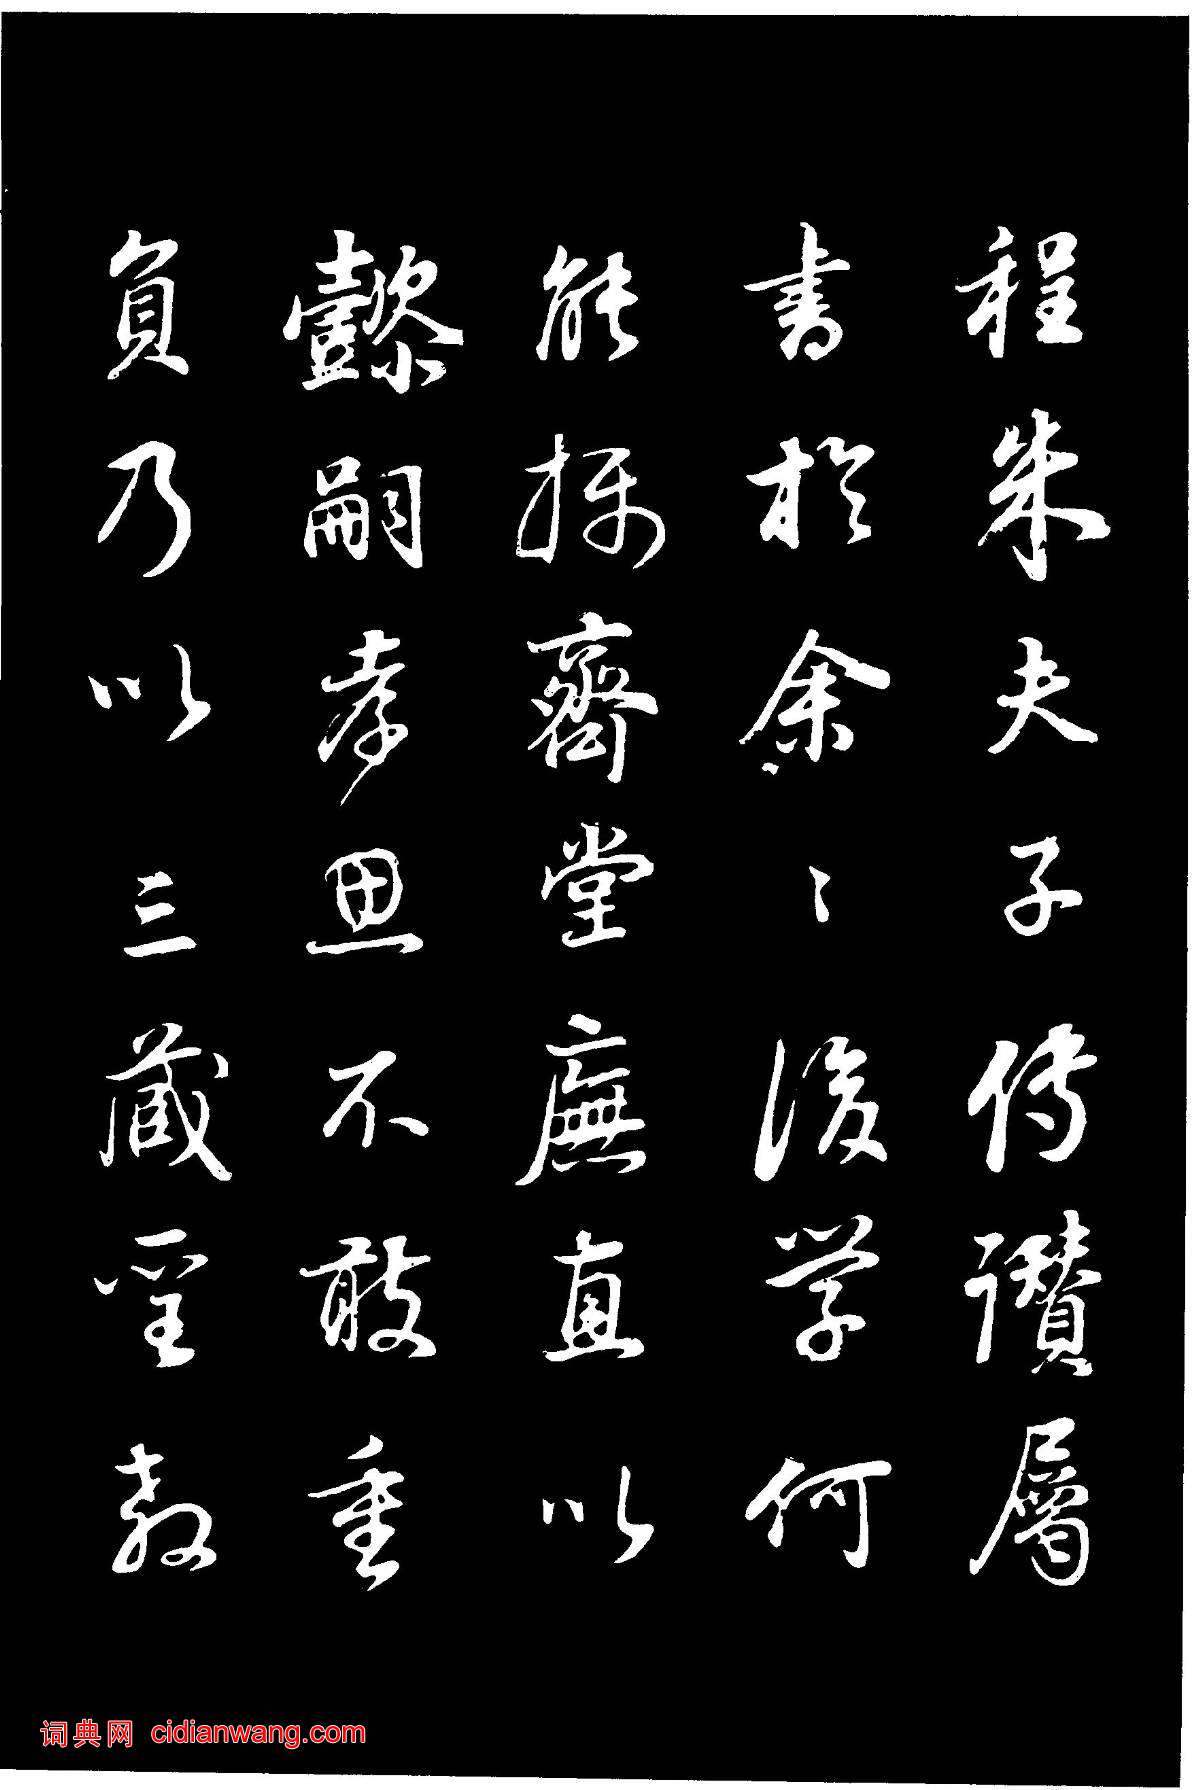 程朱夫子傳讚屬
書於余〻後學何
能摳齊堂廡直以
懿嗣孝思不敢重
負乃以三箴聖教
词典网 cidianwang.com